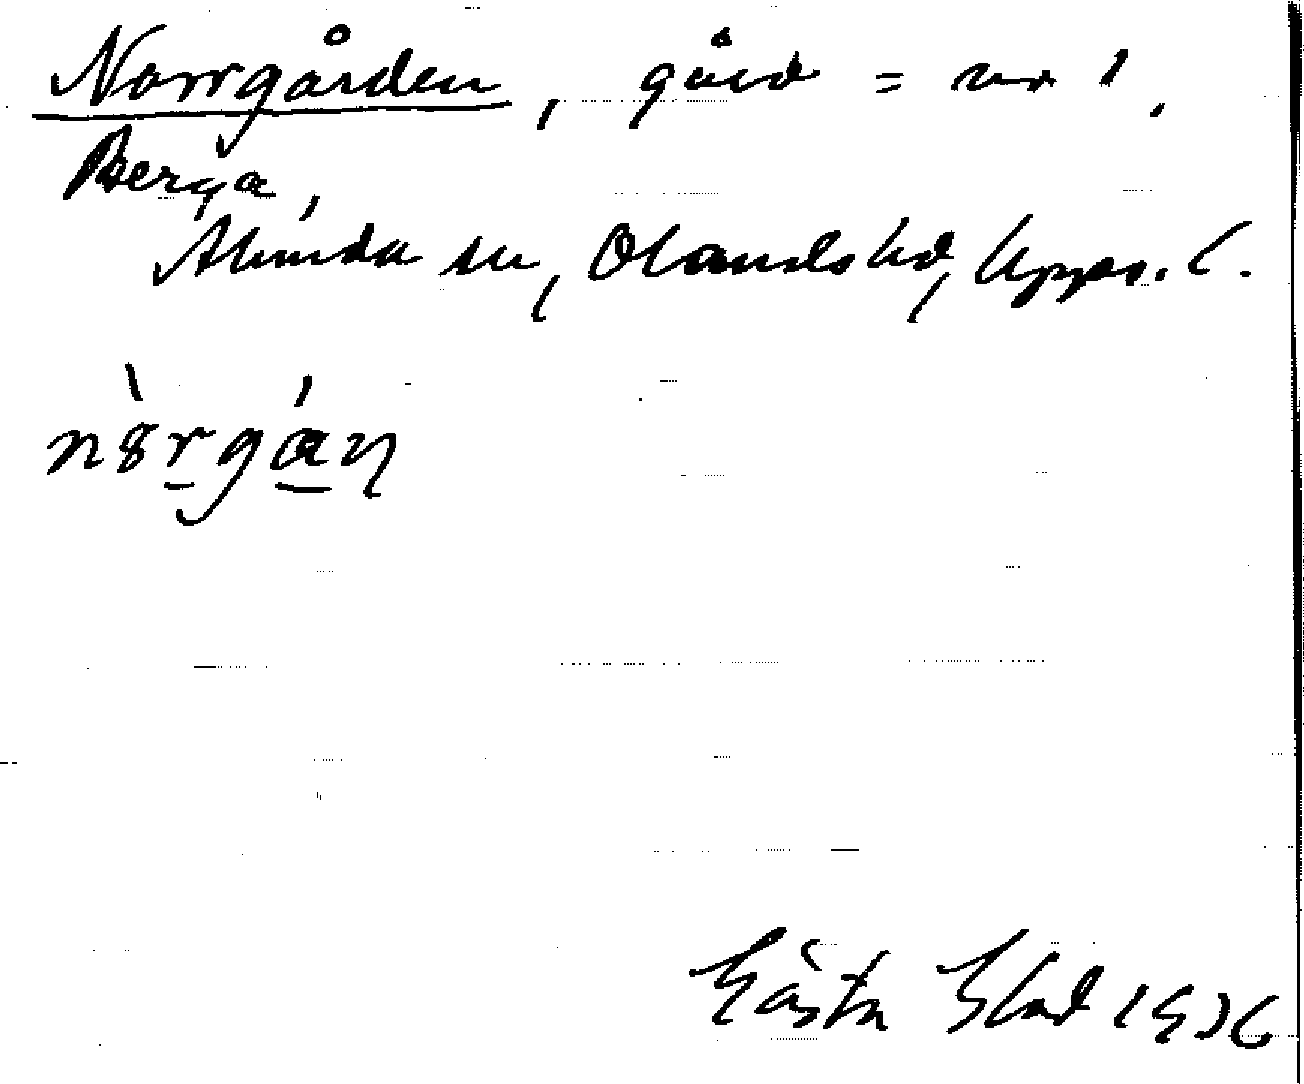 Norrgården, gård = nr 1,
Berga,
Alunda sn, Olands hd, Upps. l.
nòrgán
Gösta Blad 1936